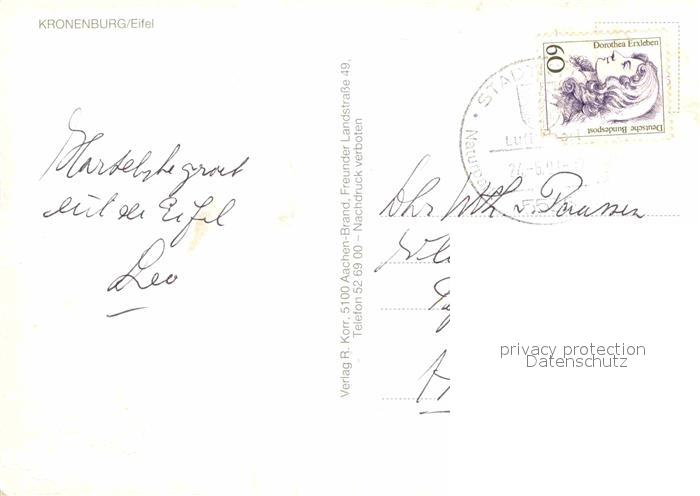 KRONENBURG/Eifel
Hartelijke groet
uit de Eifel
Leo
Verlag R. Korr, 5100 Aachen-Brand, Freunder Landstraße 49,
Telefon 52 69 00 – Nachdruck verboten
60
Dorothea Erxleben
Deutsche Bundespost
STADT
Luft
Natur
Dhr Wth. v. Paassen
privacy protection
Datenschutz